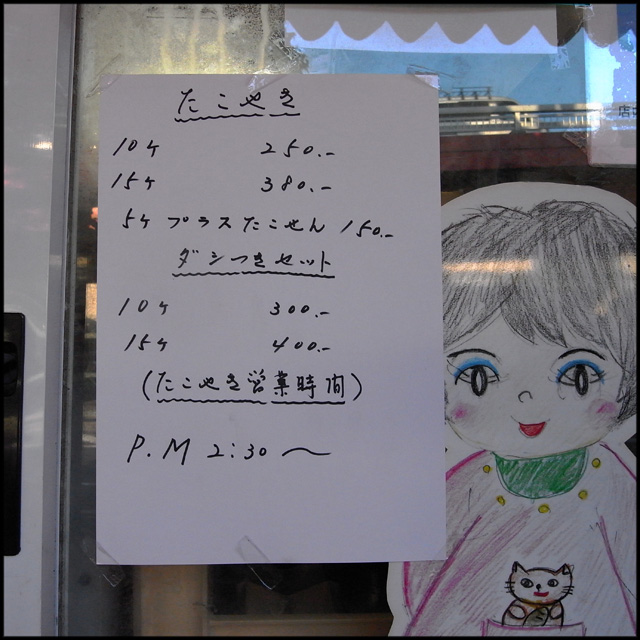 たこやき
10ケ 250.-
15ケ 380.-
5ケ プラスたこせん 150.-
ダシつきセット
10ケ 300.-
15ケ 400.-
(たこやき営業時間)
P.M 2:30〜
店